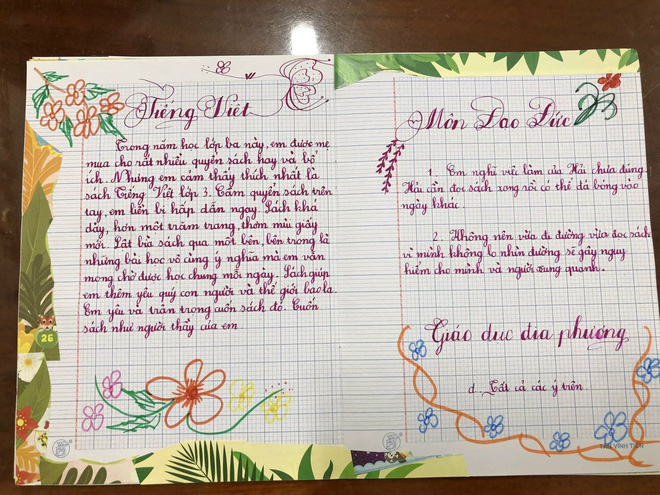 Tiếng Việt
Trong năm học lớp ba này, em được mẹ
mua cho rất nhiều quyển sách hay và bổ
ích. Nhưng em cảm thấy thích nhất là
sách Tiếng Việt lớp 3. Cầm quyển sách trên
tay, em liền bị hấp dẫn ngay. Sách khá
dày, hơn một trăm trang, thơm mùi giấy
mới. Lật bìa sách qua một bên, bên trong là
những bài học vô cùng ý nghĩa mà em vẫn
mong chờ được học chung mỗi ngày. Sách giúp
em thêm yêu quý con người và thế giới bao la.
Em yêu và trân trọng cuốn sách đó. Cuốn
sách như người thầy của em.
26
Môn Đạo Đức
1. Em nghĩ việc làm của Hải chưa đúng.
Hải cần đọc sách xong rồi có thể đá bóng vào
ngày khác.
2. Không nên vừa đi đường vừa đọc sách
vì mình không lo nhìn đường sẽ gây nguy
hiểm cho mình và người xung quanh.
Giáo dục địa phương
d. Tất cả các ý trên.